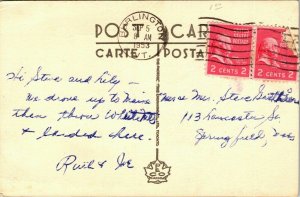 POST CARD
CARTE POSTALE
BURLINGTON
SEP 5
AM
1953
VT.
2 CENTS 2
2 CENTS 2
Hi Steve and
We drove up to Maine
then thru White Mts
& landed here.
Ruth & Joe
Mr & Mrs. Steve
113 Lancaster St
Springfield, Mass